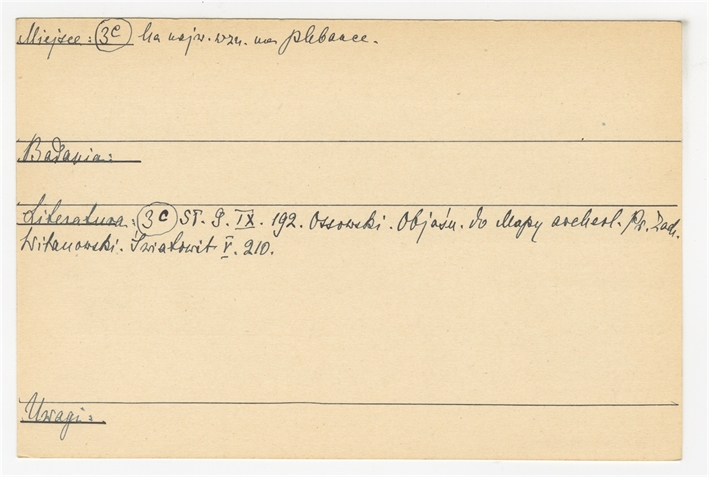 Miejsce: 3c Na najw. wzn. na plebance.
Badania:
Literatura: 3c Sł. G. IX. 192. Ossowski. Objaśn. do Mapy archeol. Pr. Zach.
Witanowski. Światowit V. 210.
Uwagi: